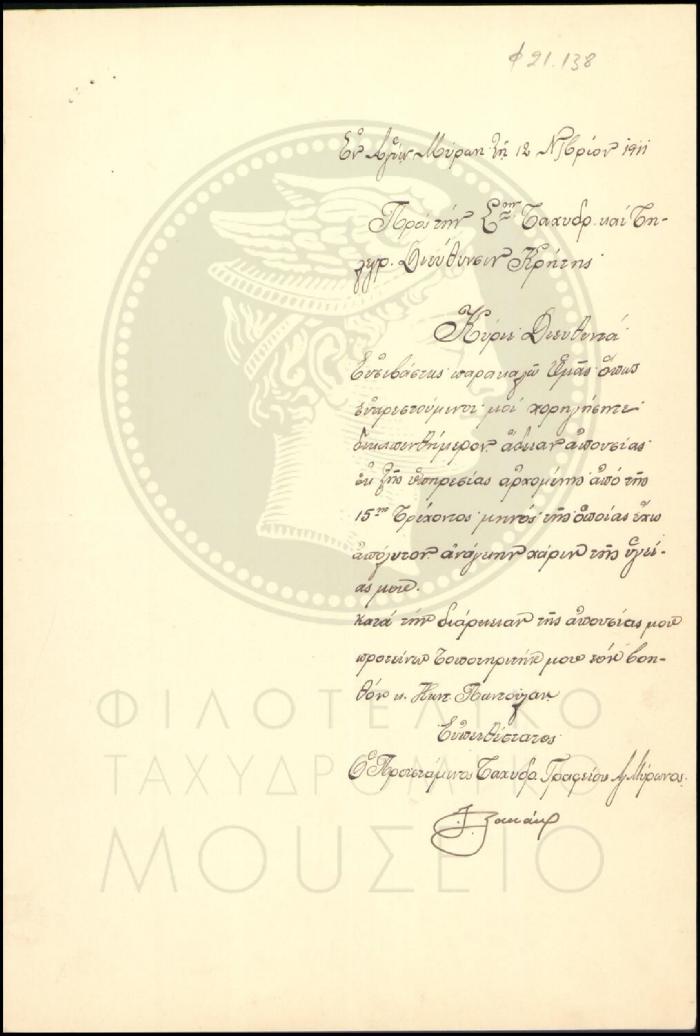 φ 21.138
Ἐν Ἁγίῳ Μύρωνι τῇ 12 Νβρίου 1911
Πρὸς τὴν Σ^{τὴν} Ταχυδρ. καὶ Τη-
λεγρ. Διεύθυνσιν Κρήτης
Κύριε Διευθυντά
Εὐσεβάστως παρακαλῶ Ὑμᾶς ὅπως
εὐαρεστούμενοι μοὶ χορηγήσητε
δεκαπενθήμερον ἄδειαν ἀπουσίας
ἐκ τῆς ὑπηρεσίας ἀρχομένης ἀπό τῆς
15ης τρέχοντος μηνός τῆς ὁποίας ἔχω
ἀπόλυτον ἀνάγκην χάριν τῆς ὑγεί-
ας μου.
κατά τήν διάρκειαν τῆς ἀπουσίας μου
προτείνω τοποτηρητήν μου τόν βοη-
θόν κ. Παντ
Εὐπειθέστατος
Ὁ Προϊστάμενος Ταχυδρ. Γραφείου Ἁγ. Μύρωνος
ΦΙΛΟΤΕΛΙΚΟ
ΤΑΧΥΔΡΟΜΙΚΟ
ΜΟΥΣΕΙΟ